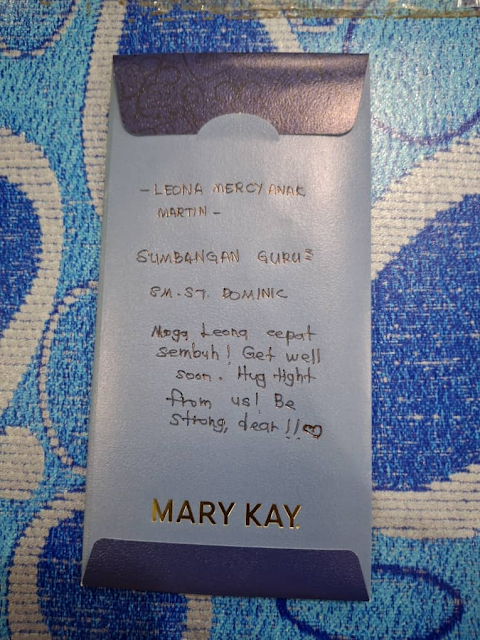 - LEONA MERCY ANAK
MARTIN -
SUMBANGAN GURU²
SM. ST. DOMINIC
Moga Leona cepat
sembuh! Get well
soon. Hug tight
from us! Be
strong, dear!!♡
MARY KAY